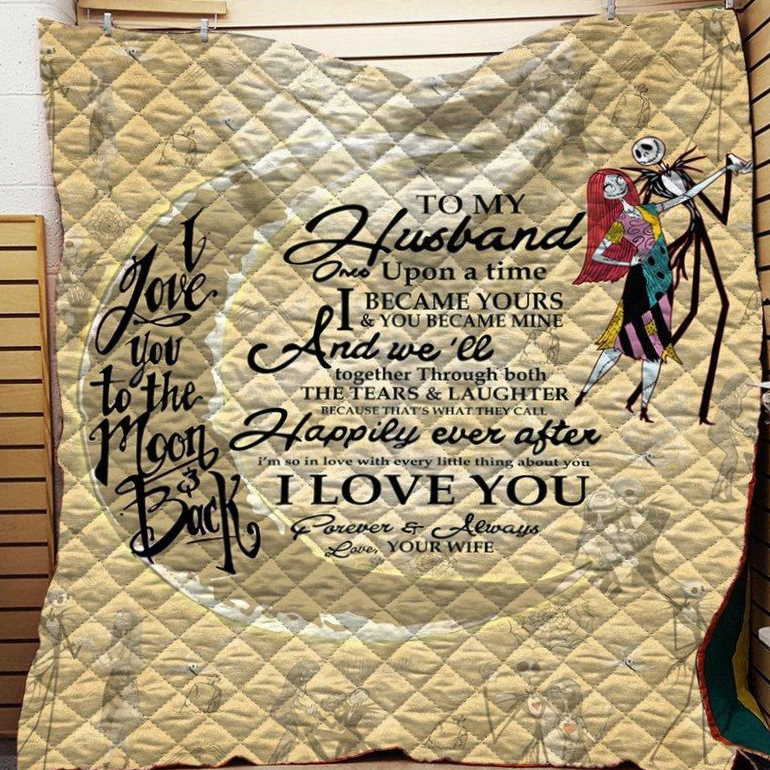 I
Love
you
to the
Moon
&
Back
TO MY
Husband
Once Upon a time
I BECAME YOURS
& YOU BECAME MINE
And we'll
together Through both
THE TEARS & LAUGHTER
BECAUSE THAT'S WHAT THEY CALL
Happily ever after
i'm so in love with every little thing about you
I LOVE YOU
Forever & Always
Love, YOUR WIFE